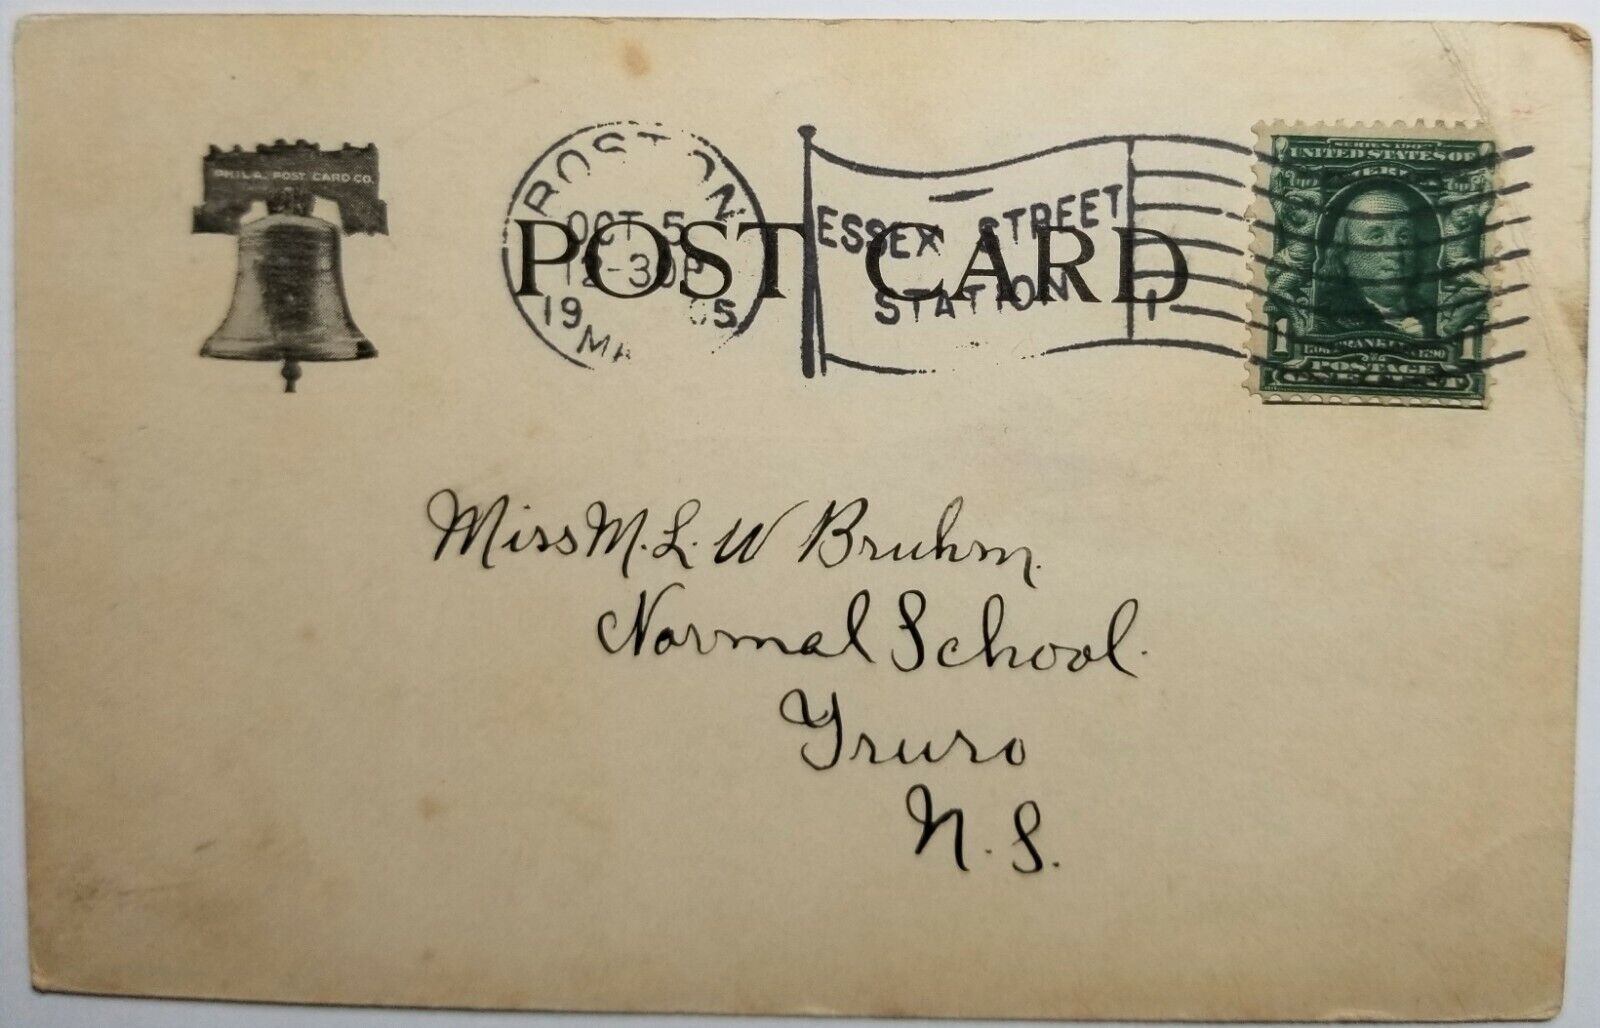 PHILA. POST CARD CO.
BOSTON
OCT 5
12-30P
19 05
MA
POST CARD
ESSEX STREET
STATION
1
SERIES 1902
UNITED STATES OF
AMERICA
1 FRANKLIN 1790 1
POSTAGE
ONE CENT
Miss M. L. W Bruhm.
Normal School.
Truro
N. S.